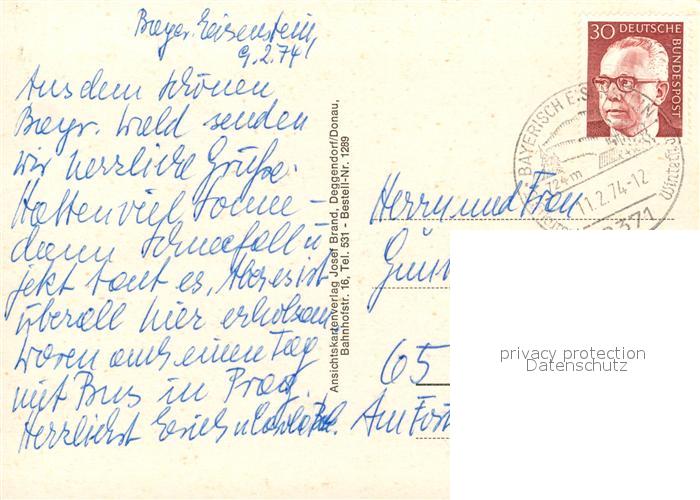 Bayer. Eisenstein,
9.2.74
Aus dem schönen
Bayr. Wald senden
wir herzliche Grüße.
Hatten viel Sonne -
dann Schneefall u
jetzt taut es, Aber es ist
überall hier erholsam
waren auch einen Tag
mit Bus in Prag.
Herzlichst Erich u
Ansichtskartenverlag Josef Brand, Deggendorf/Donau,
Bahnhofstr. 16, Tel. 531 - Bestell-Nr. 1289
30 DEUTSCHE
BUNDESPOST
BAYERISCH
724 m
11.2.74-12
8371
Herrn und Frau
65
Am
privacy protection
Datenschutz